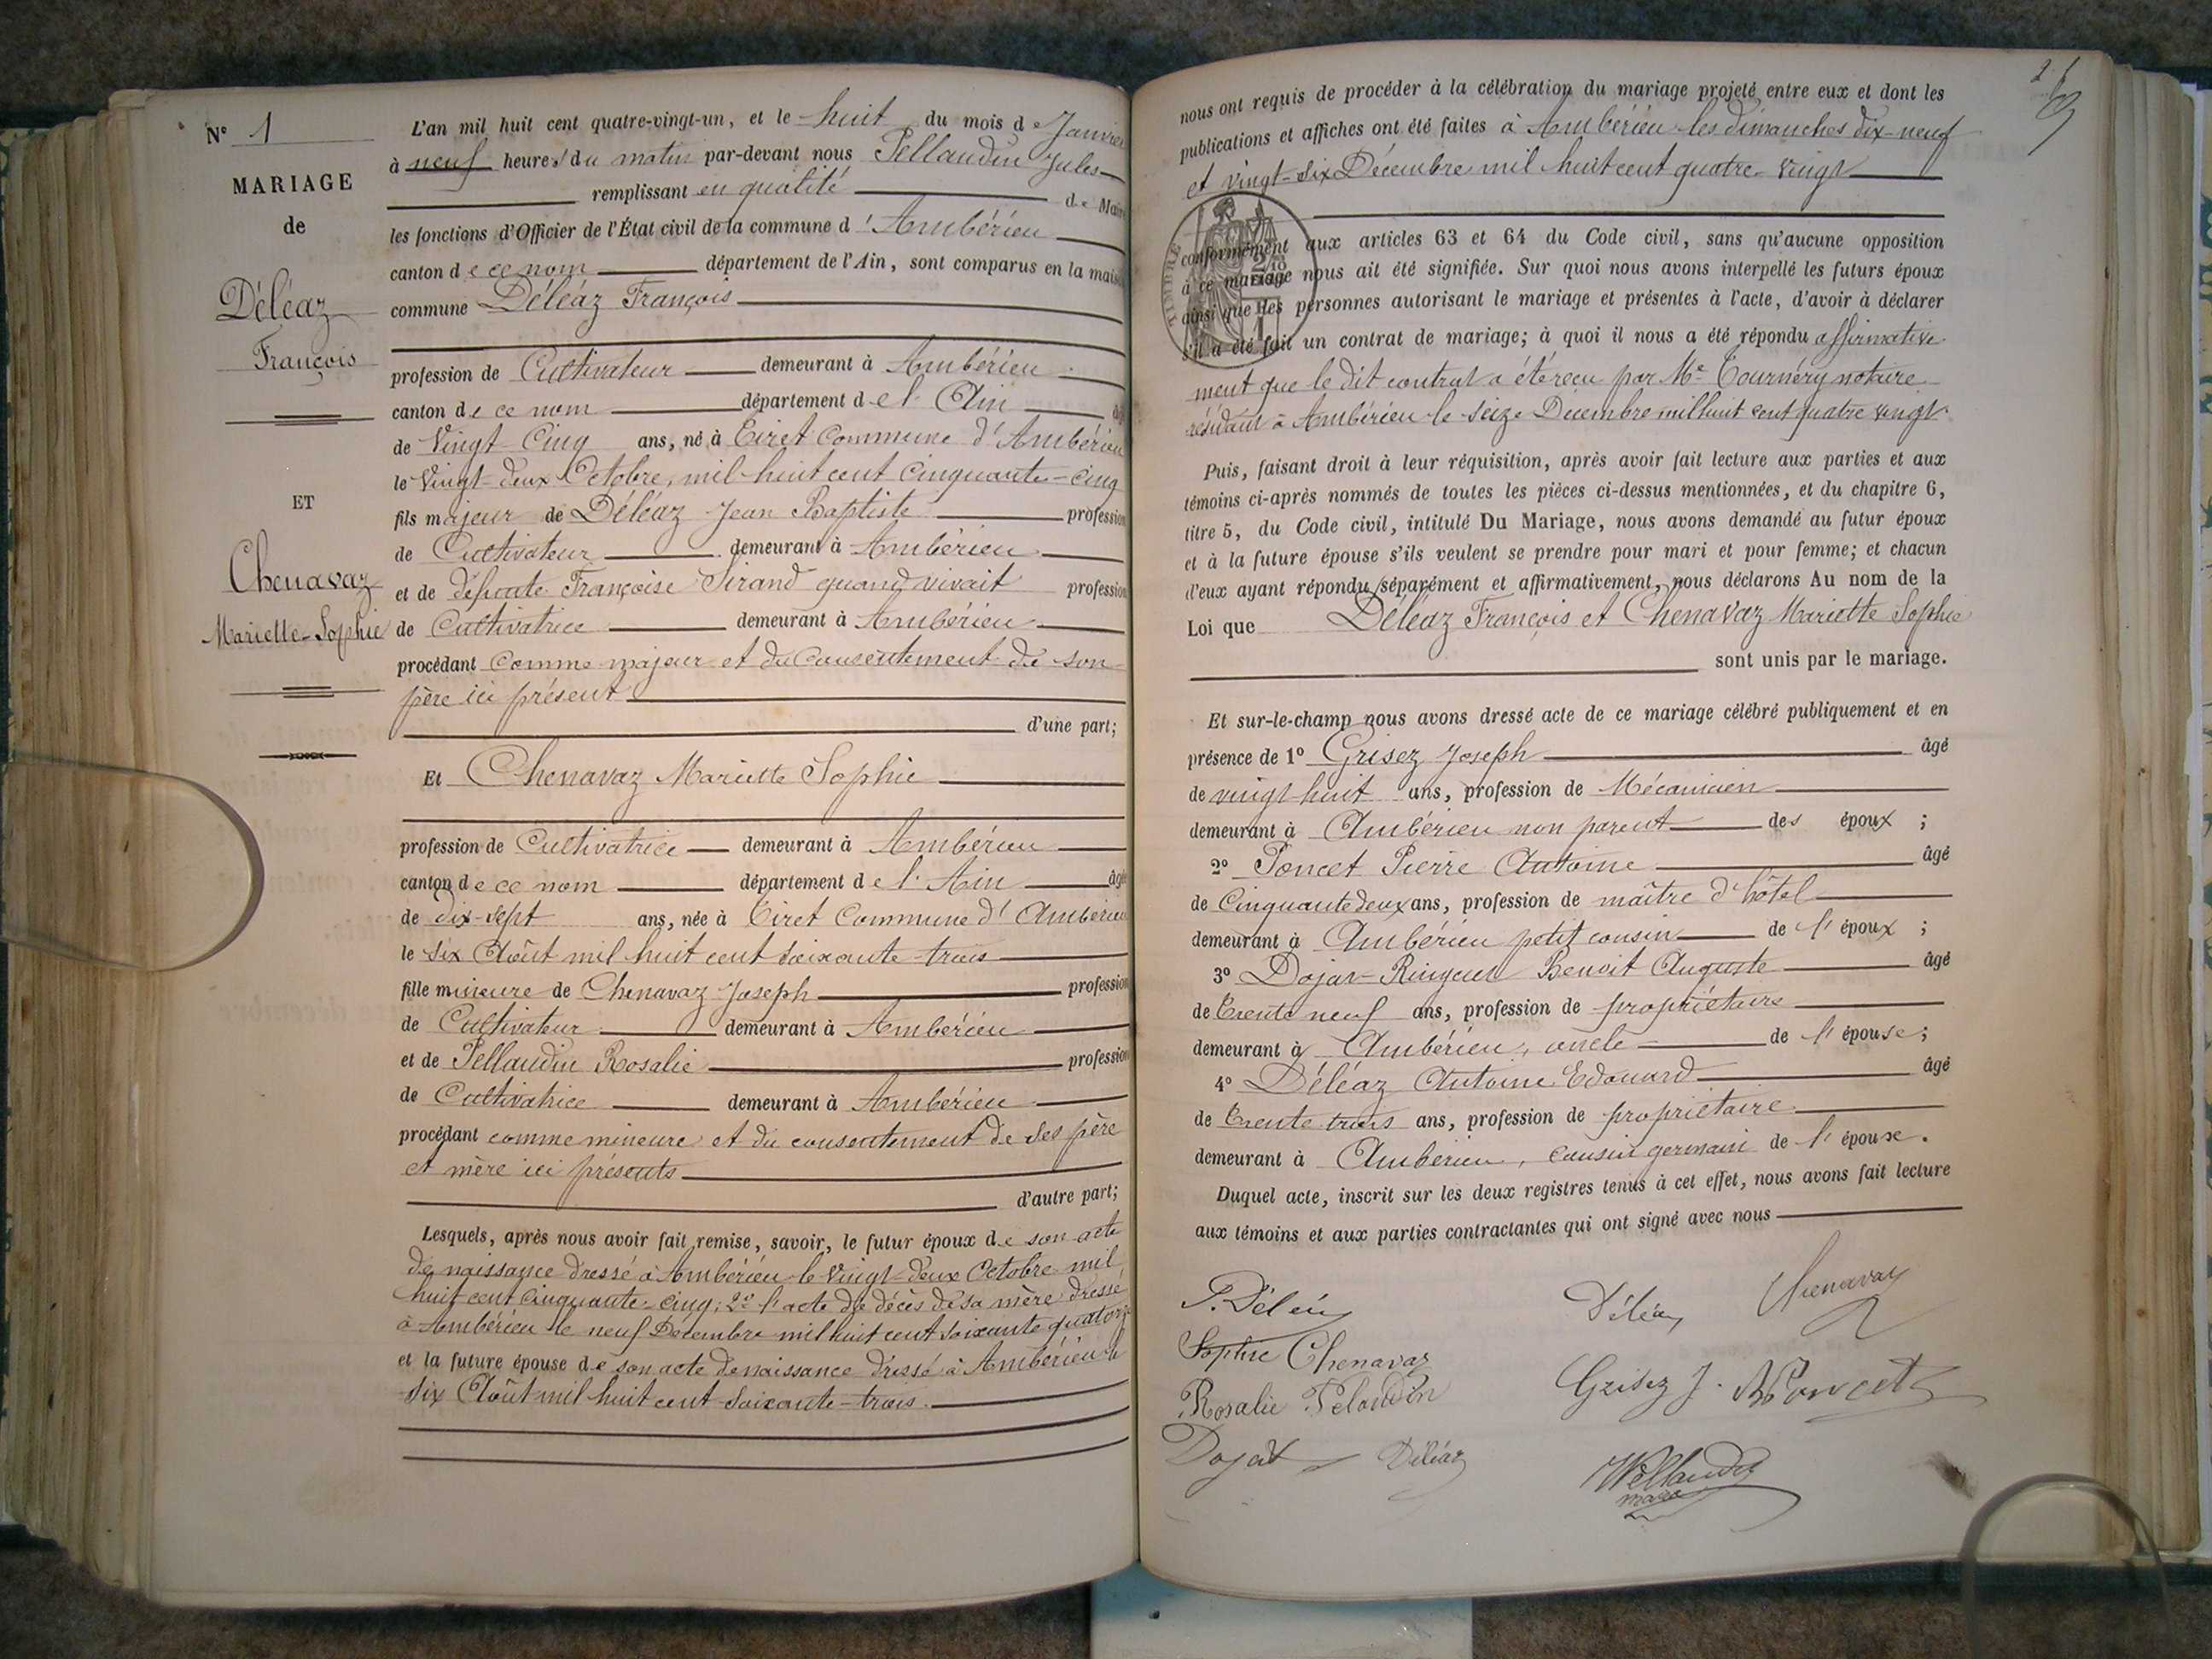 N° 1
MARIAGE
de
Déléaz
François
ET
Chenavaz
Mariette-Sophie
L'an mil huit cent quatre-vingt-un, et le huit du mois de Janvier
à neuf heures du matin par-devant nous Pellaudin Jules
remplissant en qualité de Maire
les fonctions d'Officier de l'État civil de la commune d'Ambérieu
canton de ce nom département de l'Ain, sont comparus en la maison
commune Déléaz François
profession de Cultivateur demeurant à Ambérieu
canton de ce nom département de l'Ain âgé
de Vingt-Cinq ans, né à Tiret Commune d'Ambérieu
le Vingt-deux Octobre, mil huit cent Cinquante-cinq
fils majeur de Déléaz Jean Baptiste profession
de Cultivateur demeurant à Ambérieu
et de défunte Françoise Sirand quand vivait profession
de Cultivatrice demeurant à Ambérieu
procédant comme majeur et du Consentement de son
père ici présent
d'une part;
Et Chenavaz Mariette Sophie
profession de Cultivatrice demeurant à Ambérieu
canton de ce nom département de l'Ain âgée
de dix-sept ans, née à Tiret Commune d'Ambérieu
le six Août mil huit cent soixante-trois
fille mineure de Chenavaz Joseph profession
de Cultivateur demeurant à Ambérieu
et de Pellaudin Rosalie profession
de Cultivatrice demeurant à Ambérieu
procédant comme mineure et du consentement de ses père
et mère ici présents
d'autre part;
Lesquels, après nous avoir fait remise, savoir, le futur époux de son acte
de naissance dressé à Ambérieu le Vingt-deux Octobre mil
huit cent cinquante-cinq; 2° l'acte de décès de sa mère dressé
à Ambérieu le neuf Décembre mil huit cent soixante quatorze
et la future épouse de son acte de naissance dressé à Ambérieu le
six Août mil huit cent soixante-trois.
nous ont requis de procéder à la célébration du mariage projeté entre eux et dont les
publications et affiches ont été faites à Ambérieu les dimanches dix-neuf
et vingt-six Décembre mil huit cent quatre-vingt
TIMBRE
conformément aux articles 63 et 64 du Code civil, sans qu'aucune opposition
à ce mariage nous ait été signifiée. Sur quoi nous avons interpellé les futurs époux
ainsi que les personnes autorisant le mariage et présentes à l'acte, d'avoir à déclarer
s'il a été fait un contrat de mariage; à quoi il nous a été répondu affirmative
ment que le dit contrat a été recu par Me Tournéry notaire
résidant à Ambérieu le seize Décembre mil huit cent quatre vingt
Puis, faisant droit à leur réquisition, après avoir fait lecture aux parties et aux
témoins ci-après nommés de toutes les pièces ci-dessus mentionnées, et du chapitre 6,
titre 5, du Code civil, intitulé Du Mariage, nous avons demandé au futur époux
et à la future épouse s'ils veulent se prendre pour mari et pour femme; et chacun
d'eux ayant répondu séparément et affirmativement, nous déclarons Au nom de la
Loi que Déléaz François et Chenavaz Mariette Sophie
sont unis par le mariage.
Et sur-le-champ nous avons dressé acte de ce mariage célébré publiquement et en
présence de 1° Grisez Joseph âgé
de vingt huit ans, profession de Mécanicien
demeurant à Ambérieu non parent des époux ;
2° Poncet Pierre Antoine âgé
de Cinquante deux ans, profession de maître d'hôtel
demeurant à Ambérieu petit cousin de l'époux ;
3° Dojat- Benoit Auguste âgé
de Trente neuf ans, profession de propriétaire
demeurant à Ambérieu, oncle de l'épouse;
4° Déléaz Antoine Edouard âgé
de Trente trois ans, profession de propriétaire
demeurant à Ambérieu, cousin germain de l'époux.
Duquel acte, inscrit sur les deux registres tenus à cet effet, nous avons fait lecture
aux témoins et aux parties contractantes qui ont signé avec nous
Déléaz Chenavaz
Sophie Chenavaz
Grisez J. Poncet
Rosalie Pelaudin
Dojat Déléaz
Pellaudin
maire